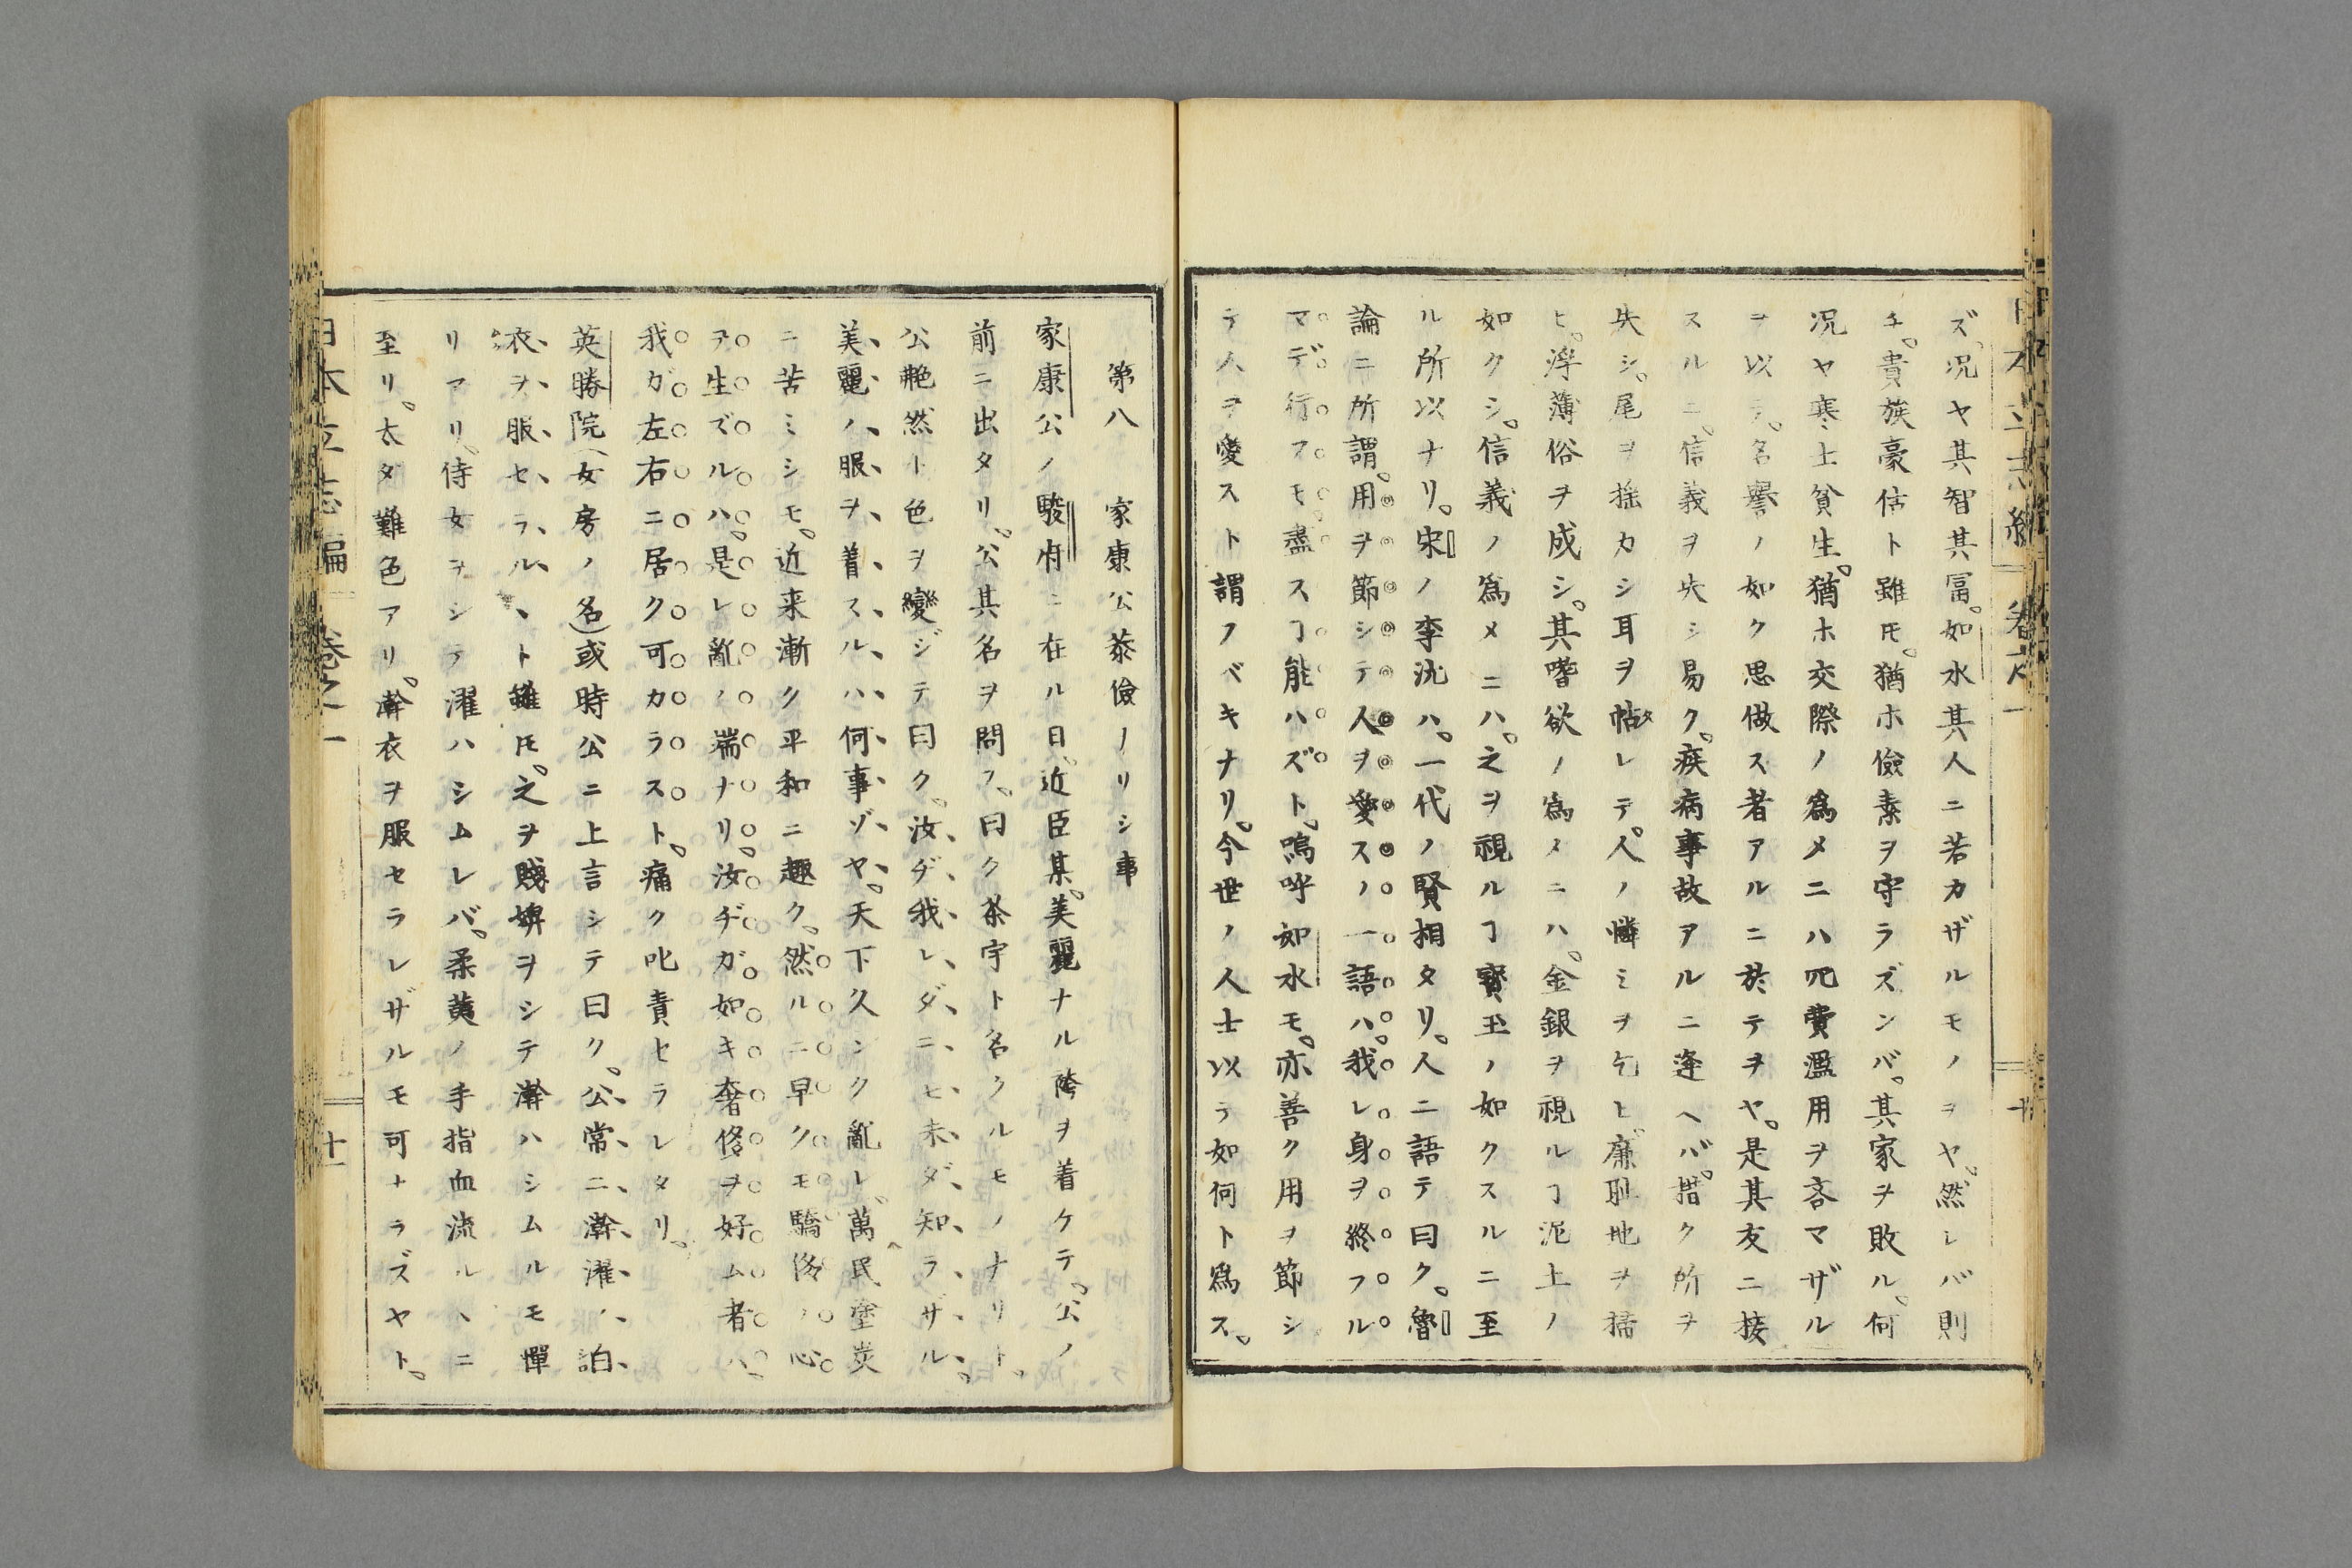 ズ、况ヤ其智其冨。如水其人ニ若カザルモノヲヤ。然レバ則
チ。貴族豪估ト雖𪜈。猶ホ儉素ヲ守ラズンバ。其家ヲ敗ル。何
况ヤ寒士貧生。猶ホ交際ノ爲メニハ冗費濫用ヲ吝マザル
ヲ以テ。名譽ノ如ク思做ス者アルニ於テヲヤ。是其友ニ接
スルニ。信義ヲ失シ易ク。疾病事故アルニ逢ヘバ。措ク所ヲ
失シ。尾ヲ揺カシ耳ヲ帖タレテ。人ノ憐ミヲ乞ヒ。廉耻地ヲ掃
ヒ。浮薄俗ヲ成シ。其嗜欲ノ爲メニハ。金銀ヲ視ルヿ泥土ノ
如クシ。信義ノ爲メニハ。之ヲ視ルヿ寳玉ノ如クスルニ至
ル所以ナリ。宋ノ李沆ハ。一代ノ賢相タリ。人ニ語テ曰ク。魯
論ニ所謂。用ヲ節シテ人ヲ愛スノ一語ハ。我レ身ヲ終フル
マデ行フモ。盡スヿ能ハズト。嗚呼如水モ。亦善ク用ヲ節シ
テ人ヲ愛スト謂フベキナリ。今世ノ人士以テ如何ト爲ス。
十
第八　家康公恭儉ナリシ事
家康公ノ駿府ニ在ル日。近臣某。美麗ナル袴ヲ着ケテ。公ノ
前ニ出タリ。公其名ヲ問フ。曰ク茶宇ト名クルモノナリト。
公艴然ト色ヲ變ジテ曰ク。汝ヂ我レダニモ未ダ知ラザル。
美麗ノ服ヲ着スルハ何事ゾヤ。天下久シク亂レ。萬民塗炭
ニ苦ミシモ。近来漸ク平和ニ趣ク。然ルニ早クモ驕侈ノ心
ヲ生ズルハ。是レ亂ノ端ナリ。汝ヂガ如キ奢侈ヲ好ム者ハ。
我ガ左右ニ居ク可カラスト。痛ク叱責セラレタリ。
英勝院(女房ノ名)或時公ニ上言シテ曰ク。公常ニ澣濯ノ泊
衣ヲ服セラルヽト雖𪜈。之ヲ賤婢ヲシテ澣ハシムルモ憚
リアリ。侍女ヲシテ濯ハシムレバ。柔荑ノ手指血流ルヽニ
至リ。太タ難色アリ。澣衣ヲ服セラレザルモ可ナラズヤト。
日本立志編　卷之一　十一